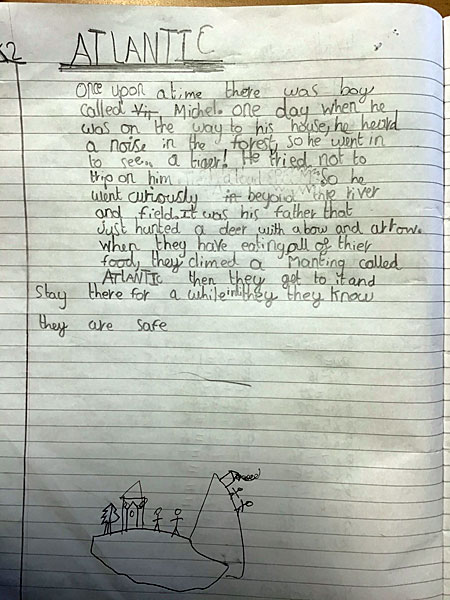 ATLANTIC
Once upon a time there was boy
called Michel. one day when he
was on the way to his house, he heard
a noise in the forest, so he went in
to see.. a tiger! He tried not to
trip on him so he
went curiously in beyond the river
and field. it was his father that
Just hunted a deer with a bow and arrow.
when they have eating all of thier
food, they climed a Manting called
ATLANTIC then they get to it and
stay there for a while they they know
they are safe